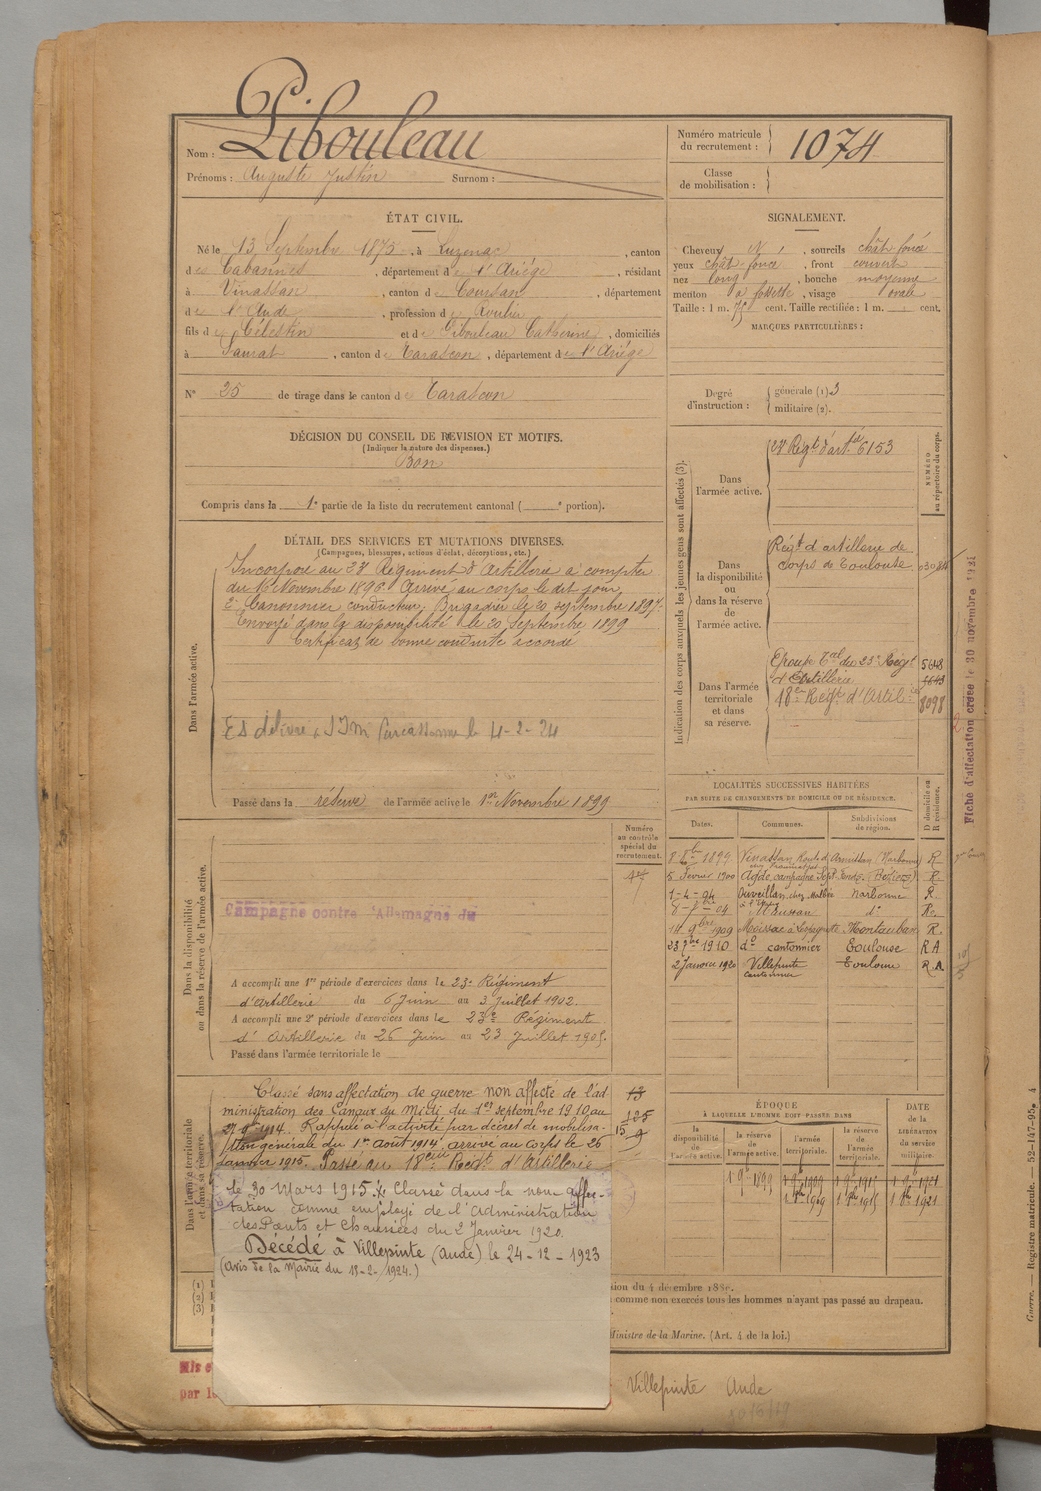 Nom : Pibouleau
Prénoms : Auguste Justin Surnom :
Numéro matricule du recrutement : 1074
Classe de mobilisation :
ÉTAT CIVIL.
Né le 13 Septembre 1875, à Luzenac, canton
de Cabannes, département de l'Ariége, résidant
à Vinassan, canton de Coursan, département
de l'Aude, profession de
fils de Célestin et de Gibouleau Catherine, domiciliés
à Saurat, canton de Tarascon, département de l'Ariége
N° 25 de tirage dans le canton de Tarascon
DÉCISION DU CONSEIL DE REVISION ET MOTIFS.
(Indiquer la nature des dispenses.)
Bon
Compris dans la 1e partie de la liste du recrutement cantonal ( e portion).
SIGNALEMENT.
Cheveux N, sourcils chât foncé
yeux chât foncé, front couvert
nez long, bouche moyenne
menton à fossette, visage ovale
Taille : 1 m. 75 cent. Taille rectifiée : 1 m. cent.
MARQUES PARTICULIÈRES :
Degré d'instruction : générale (1) 3
militaire (2).
DÉTAIL DES SERVICES ET MUTATIONS DIVERSES.
(Campagnes, blessures, actions d'éclat, décorations, etc.)
Dans l'armée active.
Incorporé au 23e Régiment d'Artillerie à compter
du 16 Novembre 1896. Arrivé au corps le dit jour,
2e Canonnier conducteur, Brigadier le 20 septembre 1897.
Envoyé dans la disponibilité le 20 Septembre 1899
Certificat de bonne conduite accordé
ES délivré Carcassonne le 4-2-24
Passé dans la réserve de l'armée active le 1er Novembre 1899
Indication des corps auxquels les jeunes gens sont affectés (3).
NUMÉRO au répertoire du corps.
Dans l'armée active.
23e Régt d'artie 6153
Dans la disponibilité ou dans la réserve de l'armée active.
Régt d'artillerie de
corps de Toulouse
Dans l'armée territoriale et dans sa réserve.
Groupe Tal du 23e Régt 5648
d'Artillerie
18e Régt d'Artil 8098
Fiche d'affectation créée le 30 novembre 1921
Dans la disponibilité ou dans la réserve de l'armée active.
Numéro au contrôle spécial du recrutement.
Campagne contre l'Allemagne du
A accompli une 1re période d'exercices dans le 23e Régiment
d'Artillerie du 6 Juin au 3 Juillet 1902.
A accompli une 2e période d'exercices dans le 23e Régiment
d'Artillerie du 26 Juin au 23 Juillet 1905.
Passé dans l'armée territoriale le
LOCALITÉS SUCCESSIVES HABITÉES
PAR SUITE DE CHANGEMENTS DE DOMICILE OU DE RÉSIDENCE.
Dates. Communes. Subdivisions de région. D domicile ou R résidence.
1899 Vinassan, Route d'Armissan Narbonne R
5 Février 1900 Agde, campagne Béziers R.
1-4-04 Ouveillan chez Narbonne R.
do R.
1909 Moissac à Montauban R.
1910 do cantonnier Toulouse R A
2 Janvier 1920 Villepinte cantonnier Toulouse R.A.
Dans l'armée territoriale et dans sa réserve.
Classé sans affectation de guerre non affecté de l'ad-
ministration des Canaux du Midi du 1er septembre 1910 au
1914. Rappelé à l'activité par décret de mobilisa-
tion générale du 1er Août 1914, arrivé au corps le 26
Janvier 1915. Passé au 18ème Régt d'Artillerie
le 30 Mars 1915. Classé dans la non-affec-
tation comme employé de l'Administration
des Ponts et Chaussées du 2 Janvier 1920.
Décédé à Villepinte (Aude) le 24-12-1923
(Avis de la Mairie du 18-2-1924.)
ÉPOQUE
À LAQUELLE L'HOMME DOIT PASSER DANS
DATE de la LIBÉRATION du service militaire.
la disponibilité de l'armée active.
la réserve de l'armée active.
l'armée territoriale.
la réserve de l'armée territoriale.
1 9bre 1899 1 9bre 1909 1 9bre 1915 1 9bre 1921
du 4 décembre
comme non exercés tous les hommes n'ayant pas passé au drapeau.
Ministre de la Marine. (Art. 4 de la loi.)
Mis e
par le
Villepinte Aude
Guerre. — Registre matricule. — 52-147-95.